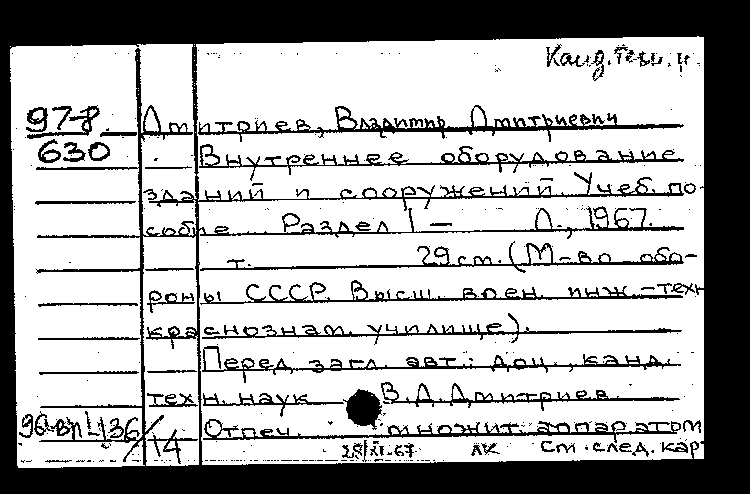 Канд. техн. н.
97-8 Дмитриев, Владимир Дмитриевич
630 Внутреннее оборудование
зданий и сооружений. Учеб. по-
собие. Раздел 1 — Л., 1967.
т. 29 см. (М-во обо-
роны СССР. Высш. воен. инж.-техн
краснознам. училище).
Перед загл. авт.: доц., канд.
техн. наук В. Д. Дмитриев
Отпеч. множит. аппаратом
14 28/XI-67 ЛК См. след. кар